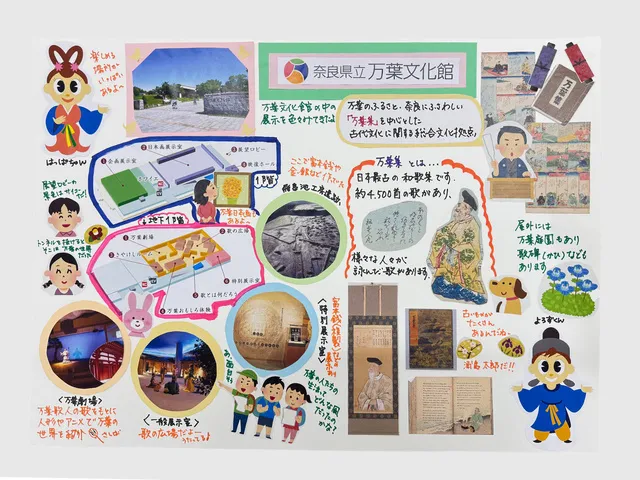 楽しめる
場所が
いっぱい
あるよ〜
はっぱちゃん
奈良県立 万葉文化館
万葉文化館の中の
展示を色々みてきたよ
万葉のふるさと・奈良にふさわしい
「万葉集」を中心とした
古代文化に関する総合文化拠点
万葉集
万葉集とは…
日本最古の和歌集です。
約4,500首の歌があり、
様々な人々が
詠んだ歌があります。
日本画展示室
展望ロビー
企画展示室
映像ホール
1階
万葉日本画も
あるよ〜
展望ロビーの
地下1階
万葉劇場
歌の広場
さやけしルーム
特別展示室
歌とは何だろう
万葉おもしろ体験
トンネルを抜けると
そこは万葉の世界
だよ
ここで富本銭や
飛鳥池工房遺跡
〈特別展示室〉
富本銭(複製)など
万葉の人たちの
生活って
どんな風
だったの
かな?
お、面白い
〈万葉劇場〉
万葉歌人の歌をもとに
人形やアニメで万葉の
世界を紹介
〈一般展示室〉
歌の広場だよ〜
うたってる♪
屋外には
万葉庭園もあり
歌碑(かひ)なども
あります
よろずくん
古いものが
たくさん
あるんだね〜
浦島太郎だ!!